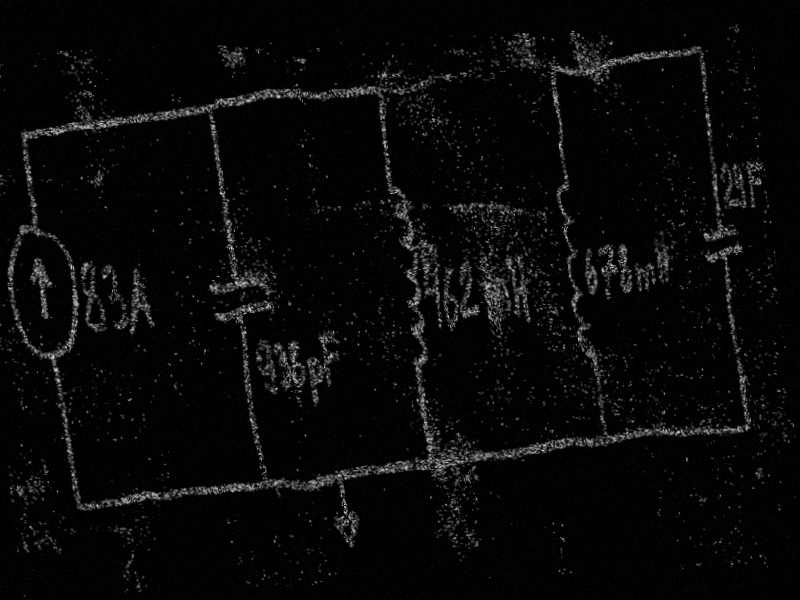 83A
936pF
462mH
678mH
21F